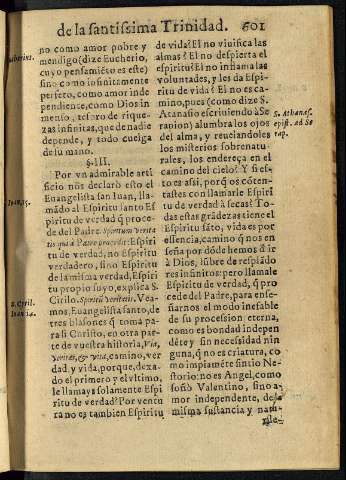 de la santissima Trinidad. 601
no como amor pobre y
mendigo (dize Eucherio,
cuyo pensamiẽto es este)
sino como infinitamente
perfeto, como amor inde
pendiente, como Dios in
menso, tesoro de rique-
zas infinitas, que de nadie
depende, y todo cuelga
de su mano.
§. III.
Por vn admirable arti
ficio nos declarò esto el
Euangelista san Iuan, lla-
mãdo al Espiritu santo Es
piritu de verdad q̃ proce
de del Padre. Spiritum verita
tis qui à Patre procedit: Espiri
tu de verdad, no Espiritu
verdadero, sino Espiritu
de la misma verdad, Espiri
tu propio suyo, explica S.
Cirilo. Spiritũ veritatis. Vea
mos, Euangelista santo, de
tres blasones q̃ toma pa
ra si Cristo, en otra parte
de vuestra historia, Via,
veritas, & vita, camino, ver
dad, y vida, porque, dexa-
do el primero y el vltimo,
le llamays solamente Espi
ritu de verdad? Por ventu
ra no es tambien Espiritu
Ioan. 15.
S. Cyril.
de vida? El no viuifica las
almas? El no despierta el
espiritu? El no inflama las
voluntades, y les dà Espi-
ritu de vida? El no es ca-
mino, pues (como dize S.
Atanasio escriuiendo à Se
rapion) alumbra los ojos
del alma, y reuelandoles
los misterios sobrenatu-
rales, los endereça en el
camino del cielo? Y si es-
to es assi, porq̃ os cõten-
tastes con llamarle Espiri
tu de verdad à secas? To-
das estas grãdezas tiene el
Espiritu sãto, vida es por
essencia, camino q̃ nos en
seña por dõde hemos d' ir
à Dios, lũbre de resplãdo
res infinitos: pero llamale
Espiritu de verdad, q̃ pro
cede del Padre, para ense-
ñarnos el modo inefable
de su procession eterna,
como es bondad indepen
dẽte y sin necessidad nin
guna, q̃ no es criatura, co
mo impiamẽte sintio Ne-
storio: no es Angel, como
soñò Valentino, sino a-
mor independente, de la
misma sustancia y natu-
rale-
S. Athanas.
epist. ad Se
rap.